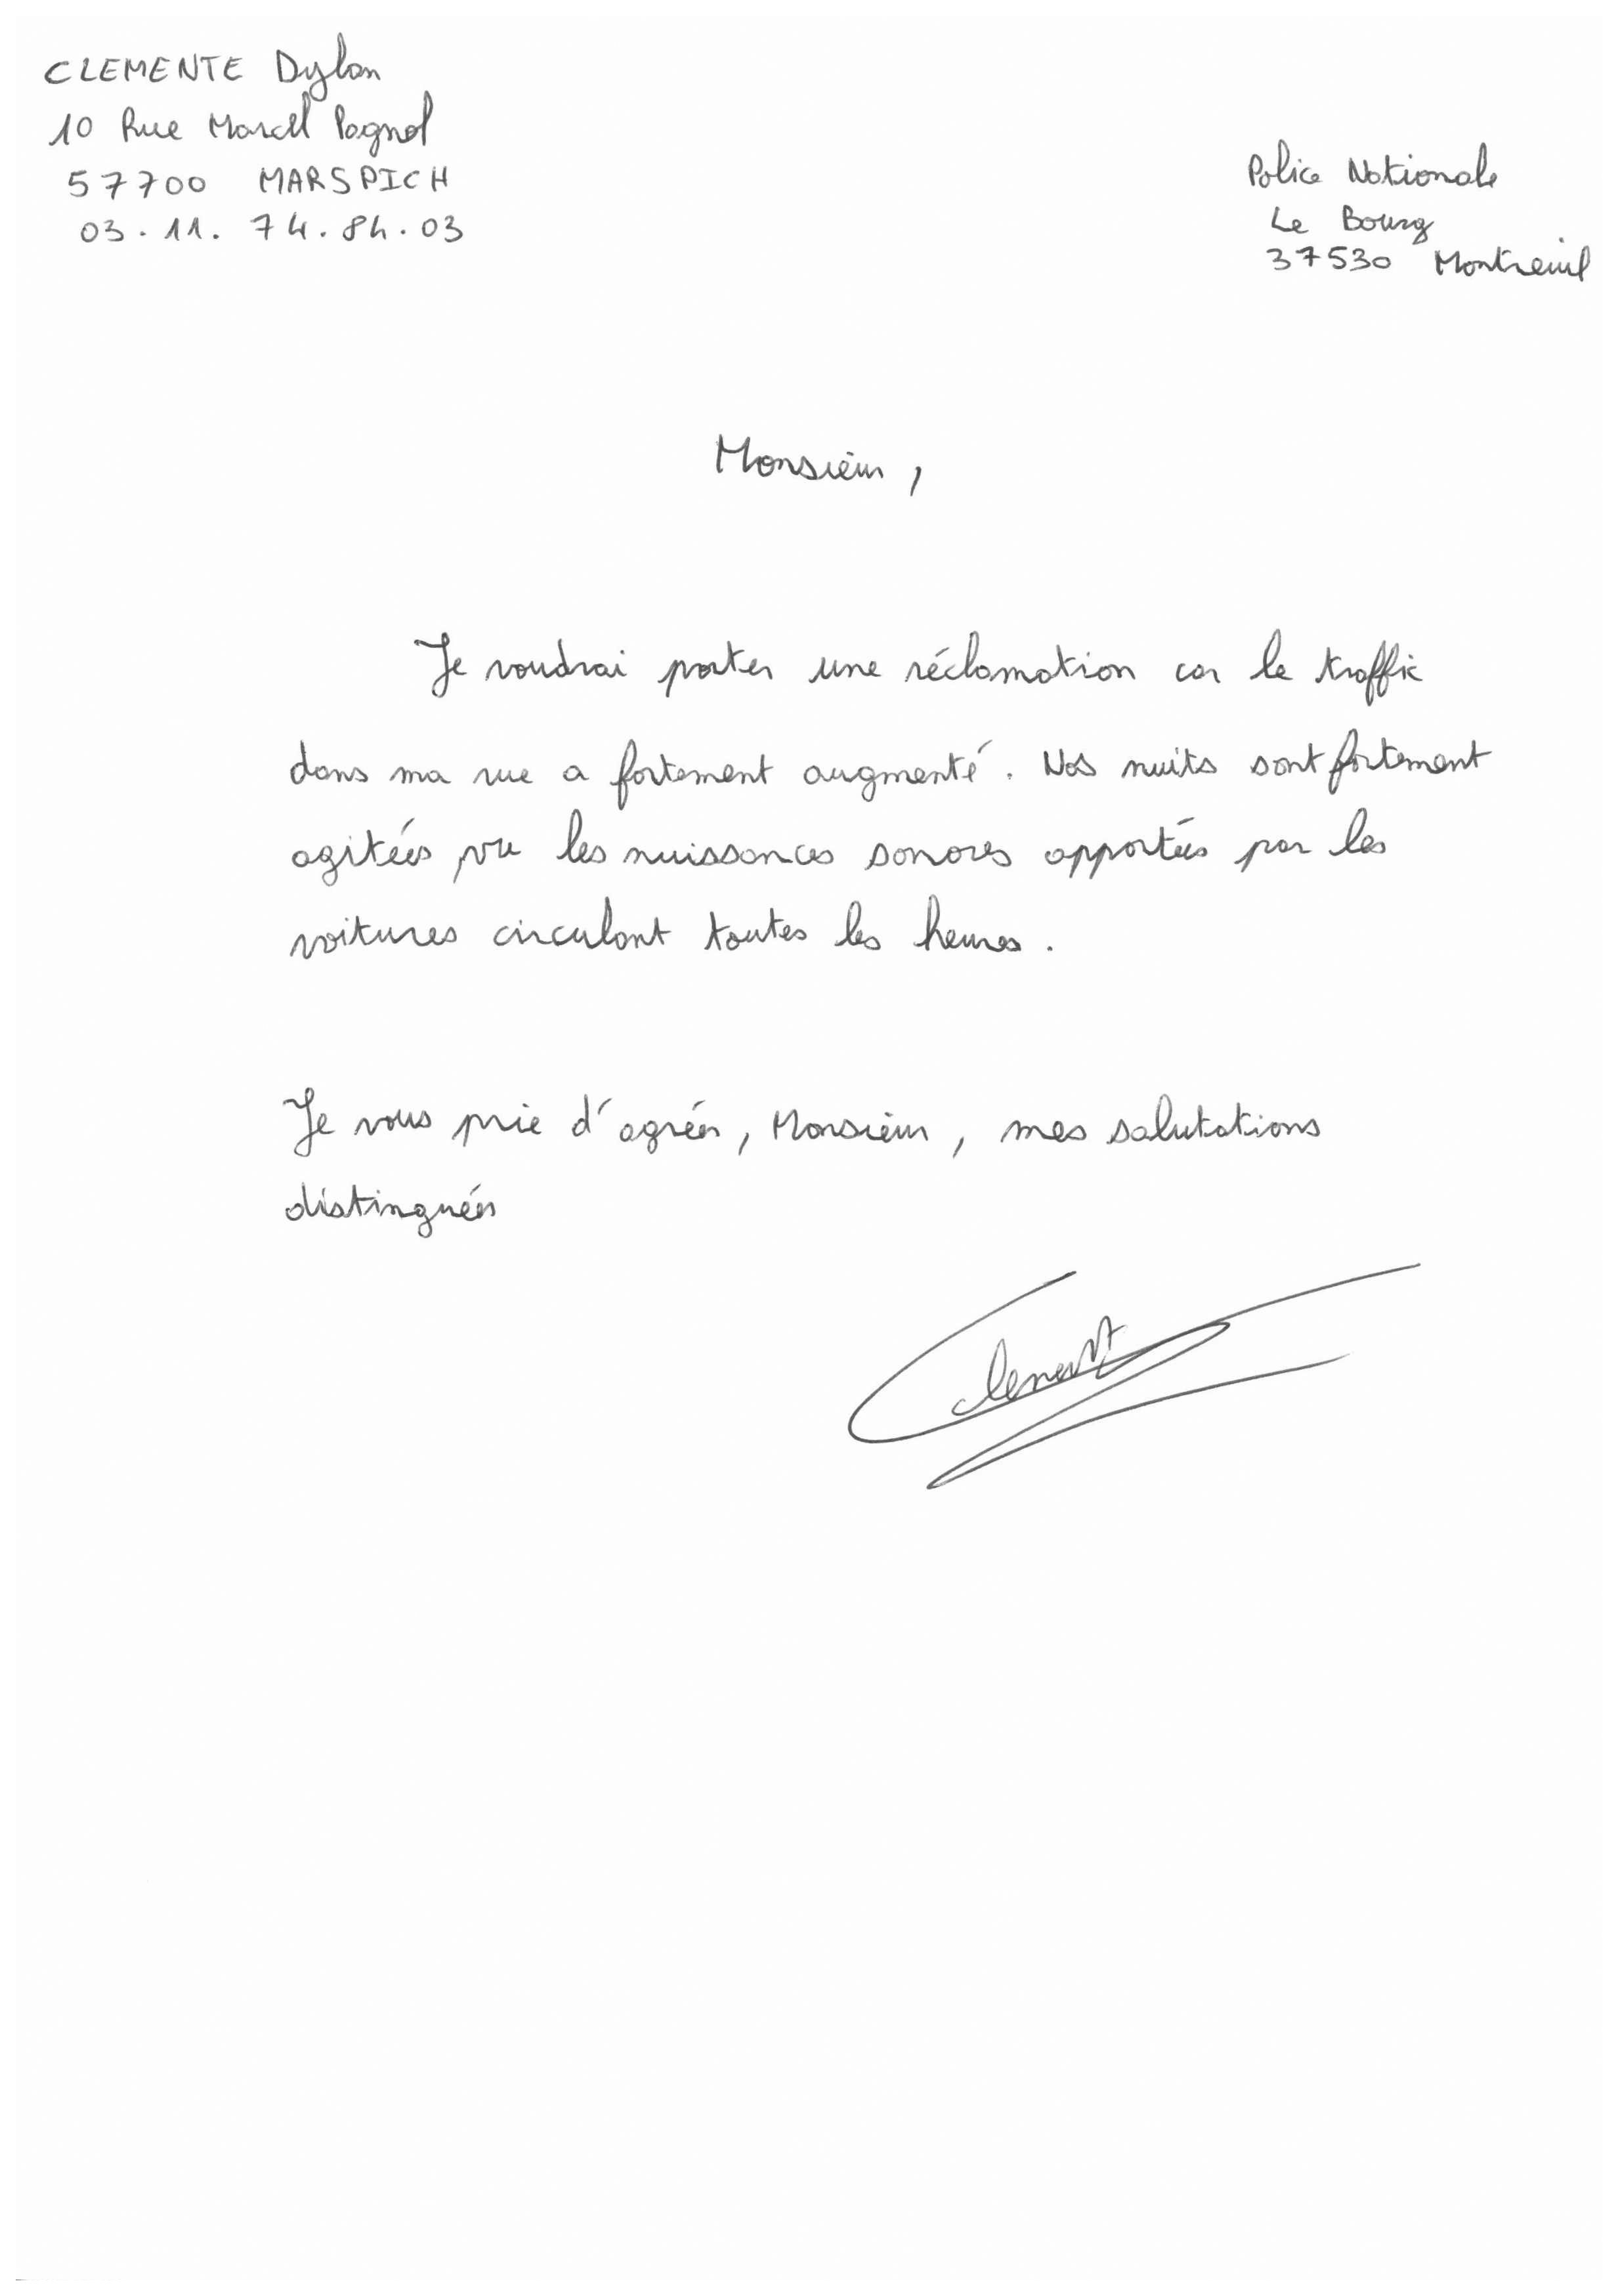 CLEMENTE Dylan
10 Rue Marcel Pagnol
57700 MARSPICH
03.11.74.84.03
Police Nationale
Le Bourg
37530 Montreuil
Monsieur,
Je voudrai porter une réclamation car le traffic
dans ma rue a fortement augmenté. Nos nuits sont fortement
agitées, vu les nuissances sonores apportées par les
voitures circulant toutes les heures.
Je vous prie d'agréer, Monsieur, mes salutations
distinguées